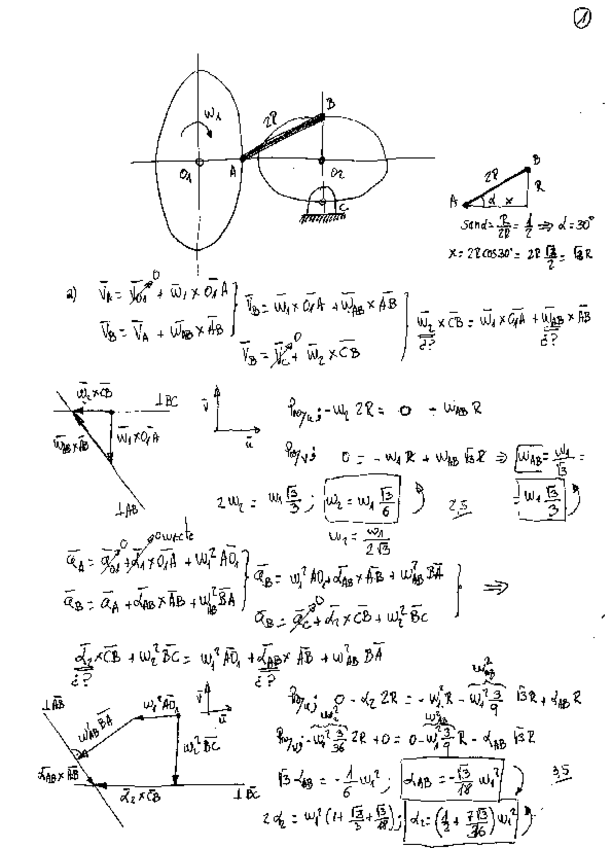 1
ω₁
2R
B
O₁
A
O₂
C
2R
B
A
α
x
R
senα = R/2R = 1/2 ⇒ α = 30°
x = 2R cos30° = 2R √3/2 = √3 R
a) V̄A = V̄O1 + ω̄₁ × O̅₁A̅
V̄B = V̄A + ω̄AB × A̅B̅
V̄B = ω̄₁ × O̅₁A̅ + ω̄AB × A̅B̅
V̄B = V̄C + ω̄₂ × C̅B̅
ω̄₂ × C̅B̅ = ω̄₁ × O̅₁A̅ + ω̄AB × A̅B̅
¿? ¿?
ω̄₂ × C̅B̅
⊥BC
ω̄₁ × O̅₁A̅
ω̄AB × A̅B̅
⊥AB
v̄
ū
Proy/u; -ω₂ 2R = 0 - ωAB R
Proy/v; 0 = -ω₁ R + ωAB √3 R ⇒ ωAB = ω₁/√3 =
= ω₁ √3/3
2ω₂ = ω₁ √3/3 ; ω₂ = ω₁ √3/6
2,5
ω₂ = ω₁/2√3
āA = āO1 + ᾱ₁ × O̅₁A̅ + ω₁² A̅O̅₁
0 0 ω₁=cte
āB = āA + ᾱAB × A̅B̅ + ω²AB B̅A̅
āB = ω₁² A̅O̅₁ + ᾱAB × A̅B̅ + ω²AB B̅A̅
āB = āC + ᾱ₂ × C̅B̅ + ω₂² B̅C̅
⇒
ᾱ₂ × C̅B̅ + ω₂² B̅C̅ = ω₁² A̅O̅₁ + ᾱAB × A̅B̅ + ω²AB B̅A̅
¿? ¿?
⊥A̅B̅
ω₁² A̅O̅₁
ω²AB B̅A̅
ω₂² B̅C̅
ᾱAB × A̅B̅
ᾱ₂ × C̅B̅
⊥B̅C̅
v̄
ū
ω²AB
Proy/u; 0 - α₂ 2R = -ω₁² R - ω₁² 3/9 √3 R + αAB R
Proy/v; -ω₁² 3/36 2R + 0 = 0 - ω₁² 3/9 R - αAB √3 R
√3 αAB = -1/6 ω₁² ; αAB = -√3/18 ω₁²
3,5
2α₂ = ω₁² (1 + √3/3 + √3/18) ; α₂ = (1/2 + 7√3/36) ω₁²